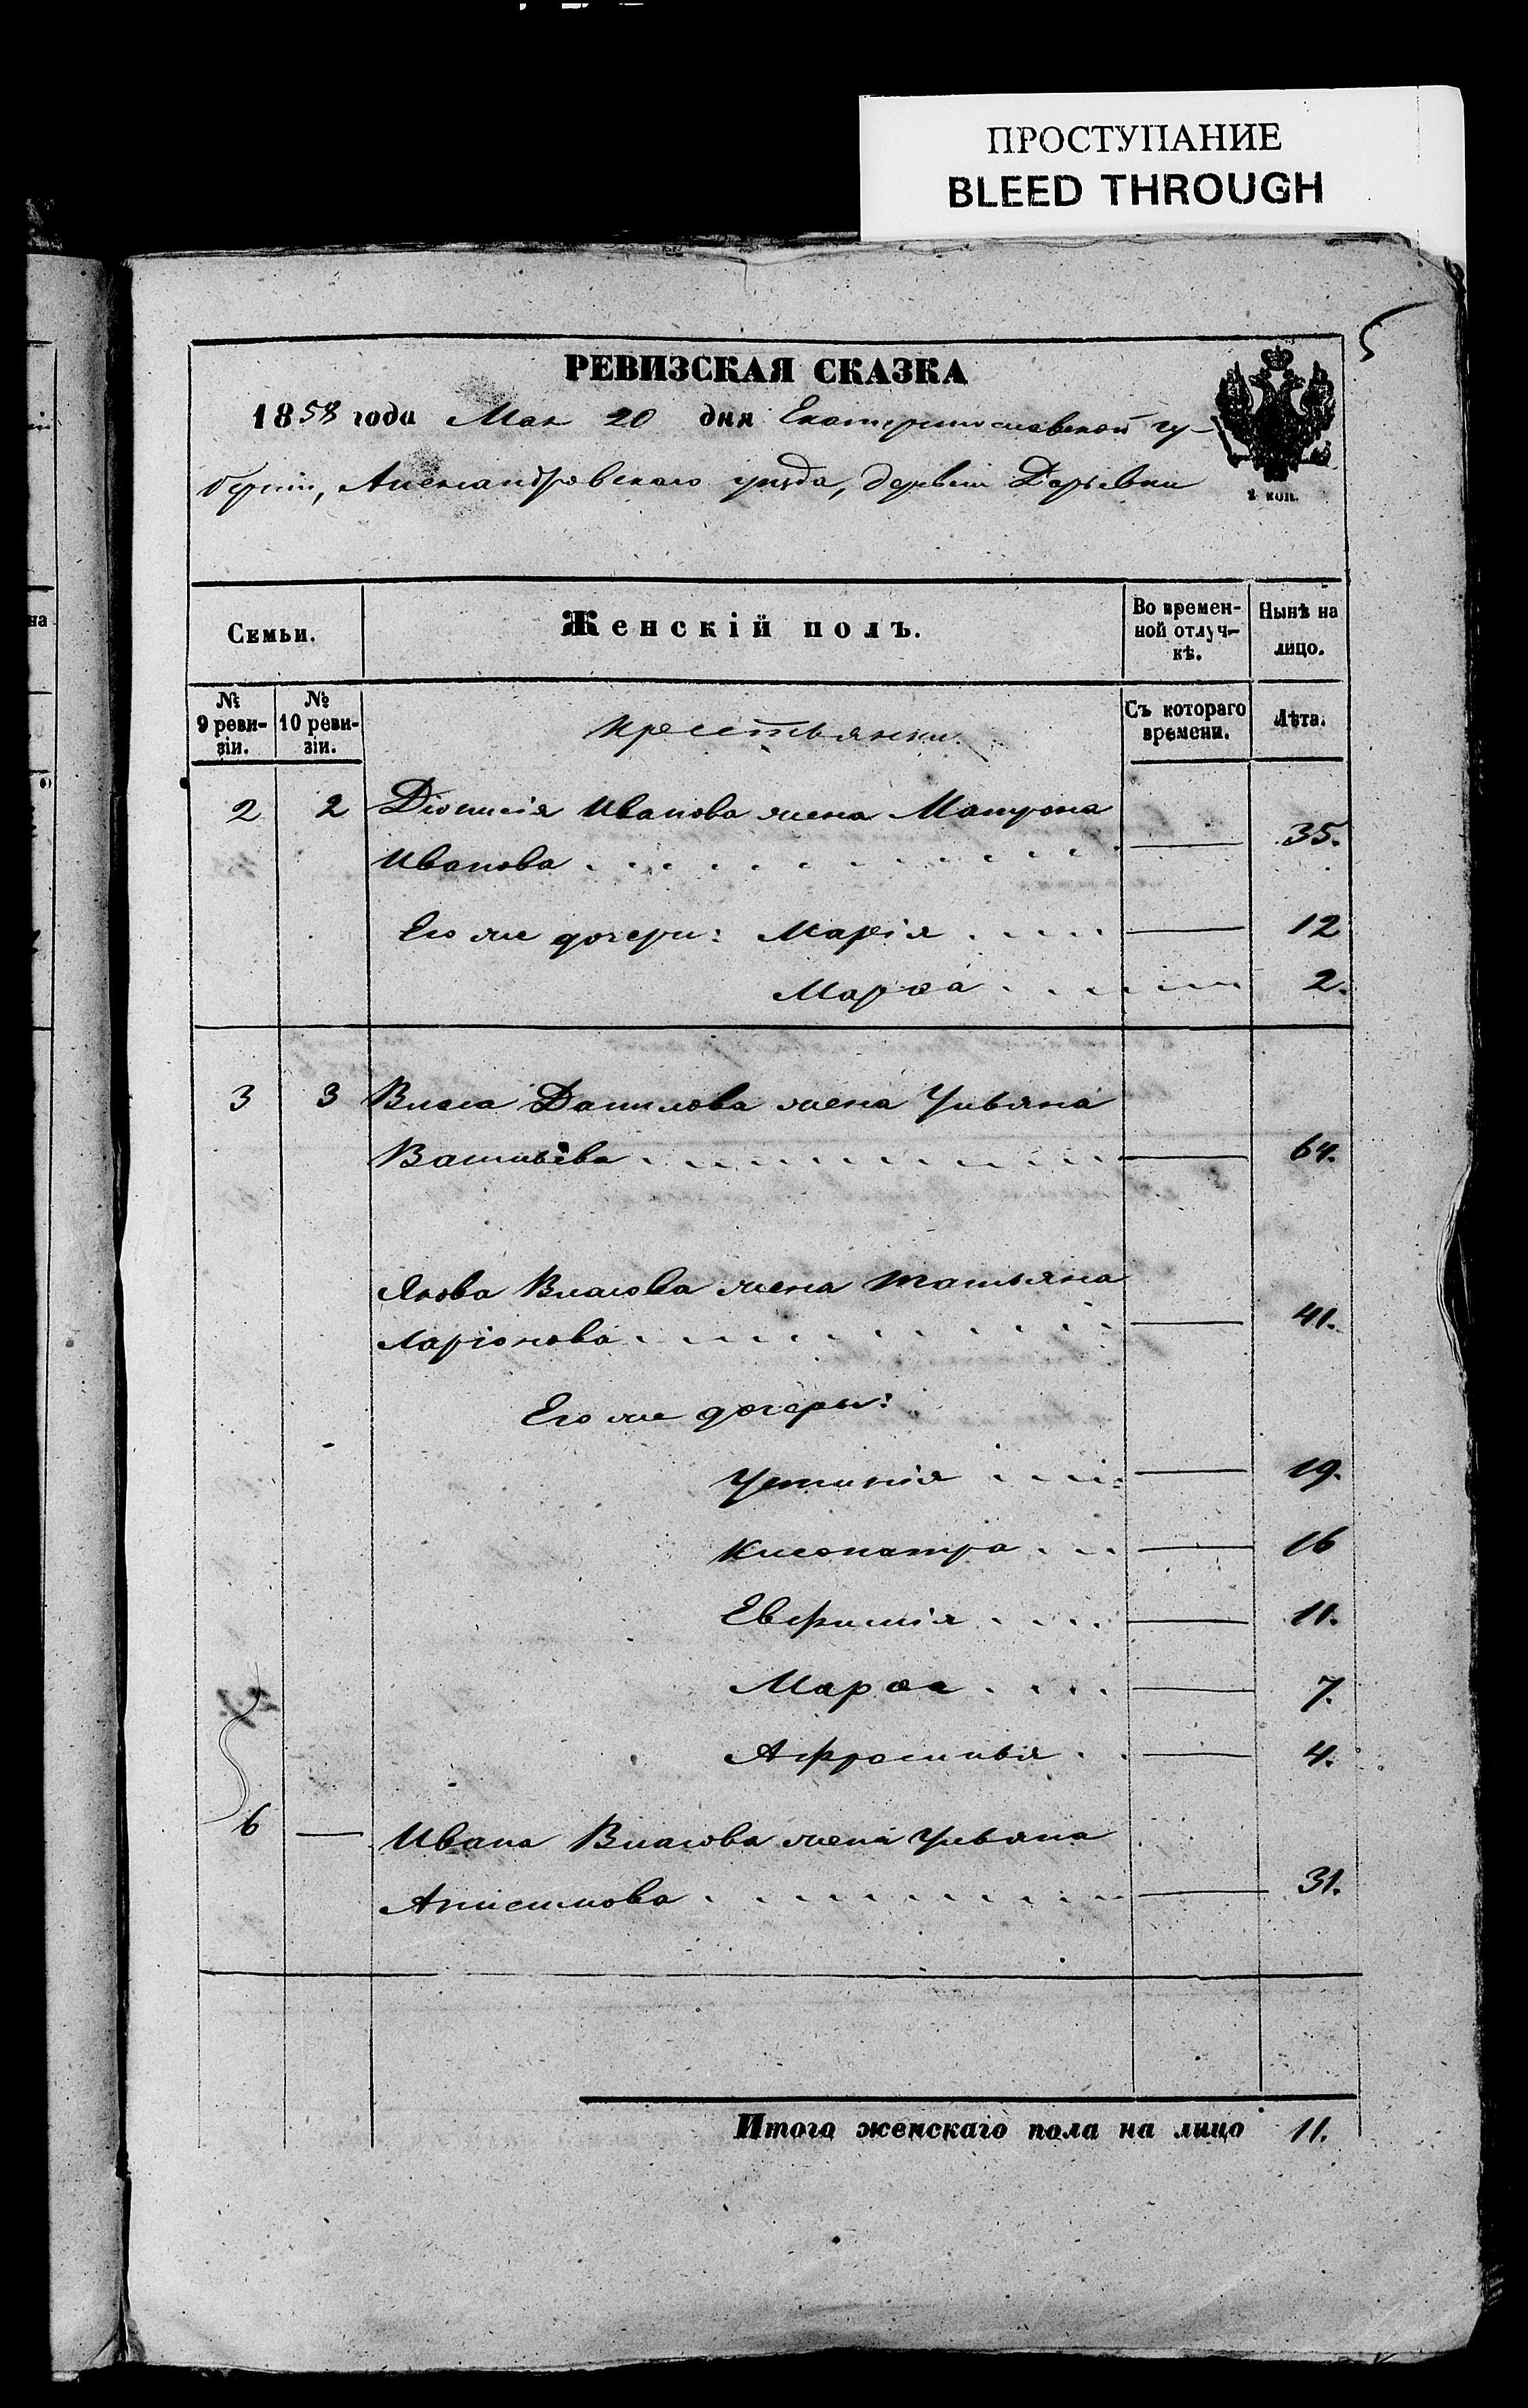 ПРОСТУПАНИЕ
BLEED THROUGH
5
РЕВИЗСКАЯ СКАЗКА
1858 года Мая 20 дня Екатеринославской гу-
берніи, Александровскаго уѣзда, деревни Дарьевки
2 коп.
Семьи.
Женскій полъ.
Во времен-
ной отлуч-
кѣ.
Нынѣ на
лицо.
№ 9 реви-
зіи.
№ 10 реви-
зіи.
Крестьянки.
Съ котораго
времени.
Лѣта.
2 2 Діонисія Иванова жена Матрона
Иванова . . . . . . . . . . . — 35.
Его же дочери: Марія . . . . — 12
Марѳа . . . . . . . 2.
3 3 Власа Данилова жена Ульяна
Васильева . . . . . . . . . . . — 64.
Якова Власова жена Татьяна
Ларіонова . . . . . . . . . . . — 41.
Его же дочери:
Устинія . . . . — 19.
Клеопатра . . . — 16
Евфимія . . . . — 11.
Марѳа . . . . — 7.
Афросинья . . — 4.
6 — Ивана Власова жена Ульяна
Анисимова . . . . . . . . . . — 31.
Итого женскаго пола на лицо 11.